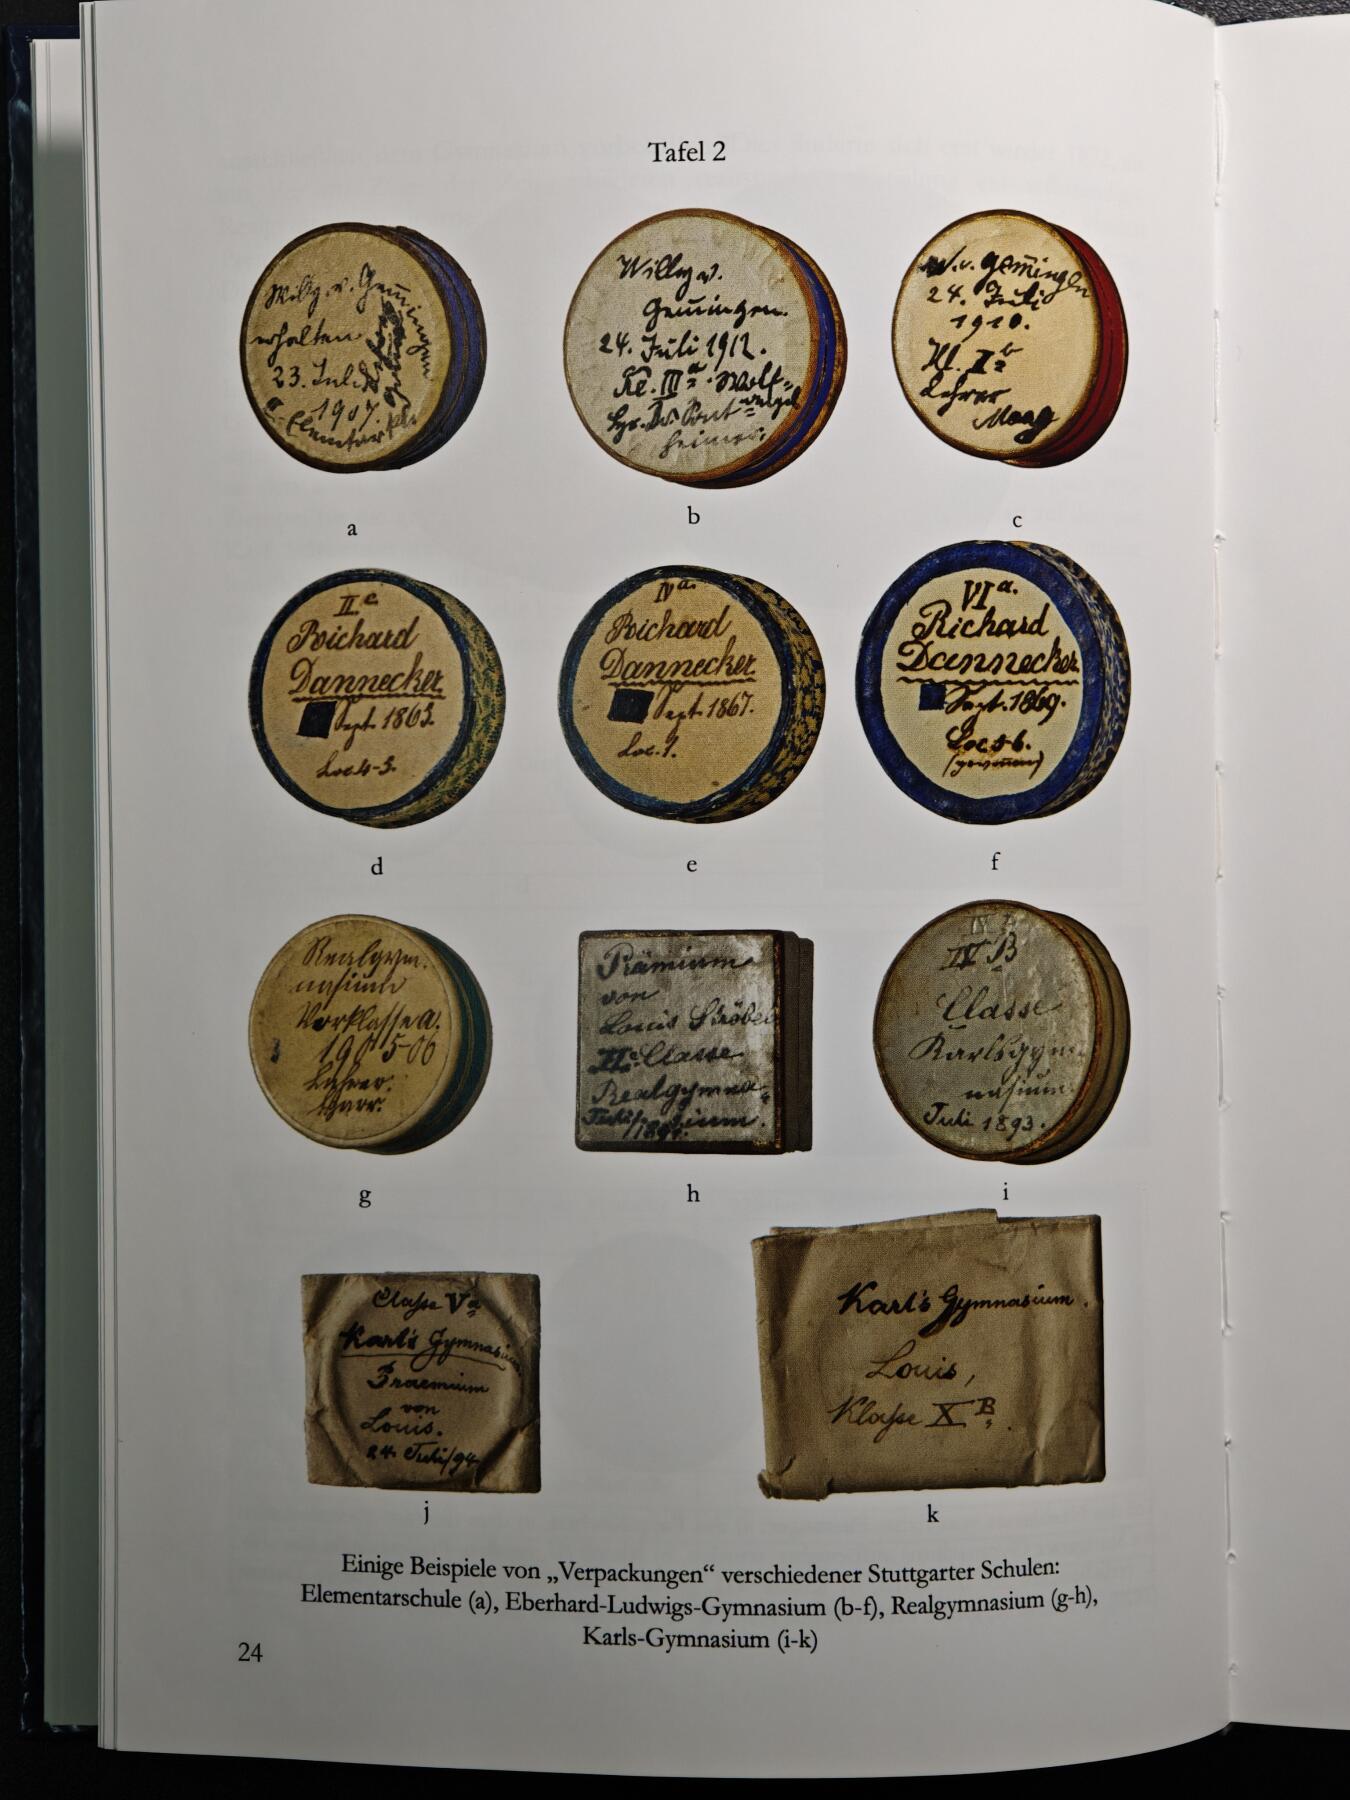 Tafel 2
Willy. v. Gemingen
erhalten
23. Juli
1907.
Elementarkl.
a
Willy v.
Gemingen.
24. Juli 1912.
Kl. III a.
b
W. v. Gemingen
24. Juli
1910.
Kl. I b
Lehrer
Maag
c
II. a.
Richard
Dannecker.
Sept. 1865.
Loc. 4-5.
d
IV a.
Richard
Dannecker.
Sept. 1867.
Loc. 1.
e
VI a.
Richard
Dannecker.
Sept. 1869.
Loc. 5-6.
(gewonnen)
f
Realgym-
nasium
Vorklasse a.
1905-06
Lehrer:
g
Prämium
von
Louis Ströbel
II. Classe
Realgymna-
Juli/ sium.
h
IV B
Classe
Karlsgym-
nasium.
Juli 1893.
i
Classe V a
Karl's Gymnasium
Praemium
von
Louis.
24. Juli/94.
j
Karl's Gymnasium.
Louis,
Klasse X B.
k
Einige Beispiele von „Verpackungen“ verschiedener Stuttgarter Schulen:
Elementarschule (a), Eberhard-Ludwigs-Gymnasium (b-f), Realgymnasium (g-h),
Karls-Gymnasium (i-k)
24